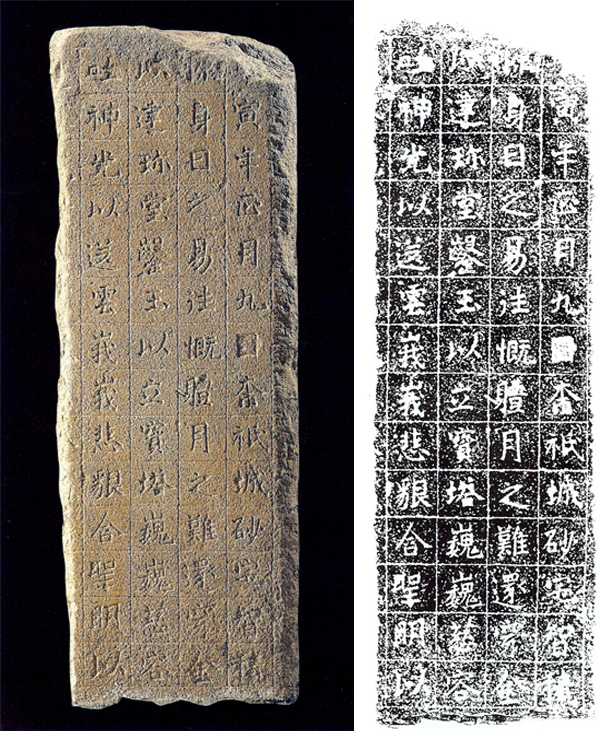 寅年正月九日奈祇城砂宅智積
慷身日之易往慨體月之難還穿金
以建珍堂鑿玉以立寶塔巍巍慈容
吐神光以送雲峩峩悲貌含聖明以
寅年正月九日奈祇城砂宅智積
慷身日之易往慨體月之難還穿金
以建珍堂鑿玉以立寶塔巍巍慈容
吐神光以送雲峩峩悲貌含聖明以